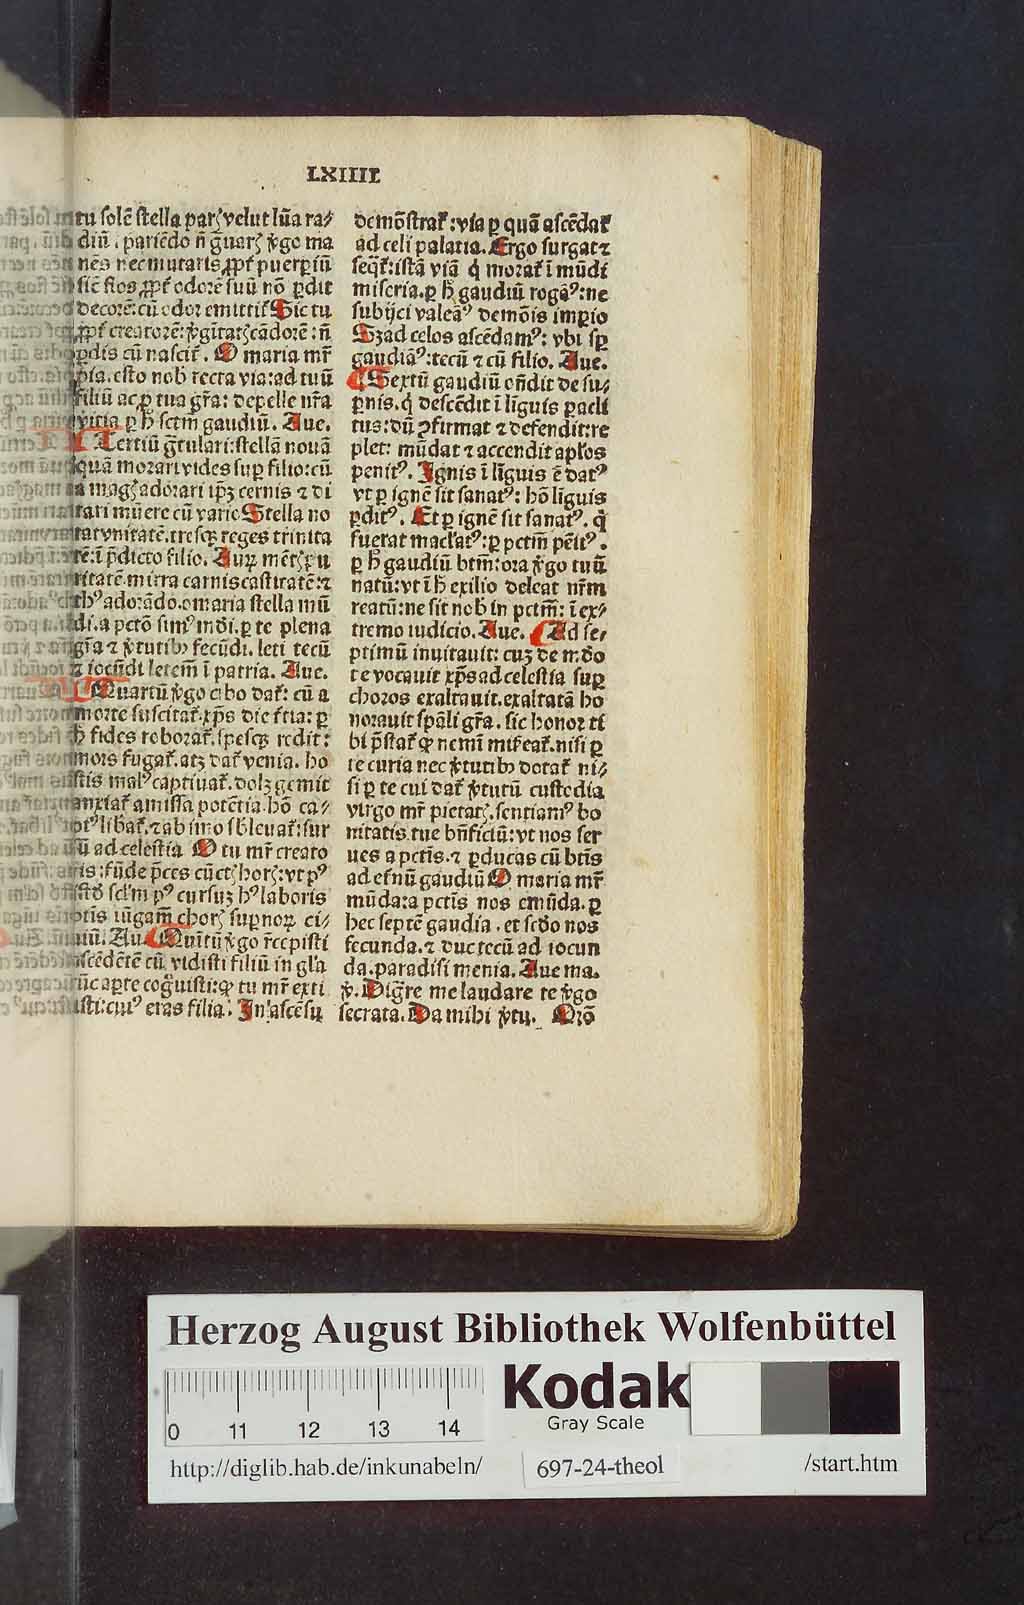 LXIIII
tu solē stella parꝫ velut lūa ra⸗
diū. pariēdo ñ ḡuarꝫ v̊go ma
nēs nec mutaris ꝓpt̕ puerꝑiū
sic̄ flos ꝓpt̕ odorē suū nō ꝑdit
decorē: cū odor emittit̕ Sic tu
ꝓpt̕ creatorē: v̊gītatꝫ cādorē: ñ
ꝑdis cū nascit̕. O maria mr̄
pia. esto nob̄ recta via: ad tuū
filiū ac ꝑ tua gr̄a: depelle nr̄a
vitia ꝑ h̄ sctm̄ gaudiū. Aue.
Tertiū ḡtulari: stellā nouā
quā morari vides suꝑ filio: cū
a magꝫ adorari ip̄ꝫ cernis ⁊ di
tari mūere cū vario Stella no
tat vnitatē. tresqꝫ reges trinita
tē: ī p̄dicto filio. Auꝝ mētꝫ pu
ritatē. mirra carnis castitatē: ⁊
th⁹ adorādo. o maria stella mū
di. a pctō sim⁹ mūdi. ꝑ te plena
gr̄a ⁊ v̊tutibꝫ fecūdi. leti tecū
⁊ iocūdi letem̄ ī patria. Aue.
Quartū v̊go c̊ ho dat̕: cū a
morte suscitat̕ xp̄s die t̕tia: ꝑ
h̄ fides roborat̕. spesqꝫ redit:
mors fugat̕. atqꝫ dat̕ venia. ho
stis mal⁹ captiuat̕. dolꝫ gemit
anxiat̕ amissa potētia. hō ca⸗
ot⁹ libat̕. ⁊ ab imo s̄bleuat̕: sur
ū ad celestia O tu mr̄ creato
ris: fūde p̄ces cū ctꝫ horꝫ: vt p⁹
istō scl̄m p⁹ cursuꝫ h⁹ laboris
tis iūgam̄ chorꝫ suꝑnoꝝ ci⸗
uiū. Au. Quītū v̊go recepisti
scēdētē cū vidisti filiū in gl̄a
ūc aꝑte cog̊uisti: ꝙ tu mr̄ exti
sti: cui⁹ eras filia. In ascēsu
demōstrat̕: via ꝑ quā ascēdat̕
ad celi palatia. Ergo surgat ⁊
seq̄t̕: istā viā q̇ morat̕ ī mūdi
miseria. ꝑ h̄ gaudiū rogam⁹: ne
subijci valeam⁹ demōis imꝑio
Sꝫ ad celos ascēdam⁹: vbi sꝑ
gaudiam⁹: tecū ⁊ cū filio. Aue.
Sextū gaudiū oñdit de su⸗
ꝑnis. q̇ descēdit ī līguis ꝑacli
tus: dū ꝯfirmat ⁊ defendit: re
plet: mūdat ⁊ accendit apl̄os
penit⁹. Ignis ī līguis ē dat⁹
vt ꝑ ignē sit sanat⁹: hō līguis
ꝑdit⁹. Et ꝑ ignē sit sanat⁹. q̇
fuerat macl̄at⁹: ꝑ pctm̄ pēit⁹.
ꝑ h̄ gaudiū btm̄: ora v̊go tuū
natū: vt ī h̄ exilio deleat nr̄m
reatū: ne sit nob̄ in pctm̄: ī ex⸗
tremo iudicio. Aue. Ad se⸗
ptimū inuitauit: cuꝫ de mūdo
te vocauit xp̄s ad celestia suꝑ
choros exaltauit. exaltatā ho
norauit spāli gr̄a. sic honor ti
bi p̄stat̕ ꝙ nemī mitteat̕. nisi ꝑ
te curia nec v̊tutibꝫ dotat̕ ni⸗
si ꝑ te cui dat̕ v̊tutū custodia
virgo mr̄ pietatꝫ. sentiam⁹ bo
nitatis tue bñficiū: vt nos ser
ues a pctīs. ⁊ ꝑducas cū btīs
ad et̕nū gaudiū O maria mr̄
mūda: a pctīs nos emūda. ꝑ
hec septē gaudia. et fac̄do nos
fecunda. ⁊ duc tecū ad iocun
da. paradisi menia. Aue ma.
v̊. Digr̄e me laudare te v̊go
secrata. Da mihi v̊tu. Orō
Herzog August Bibliothek Wolfenbüttel
0 11 12 13 14
Kodak
Gray Scale
http://diglib.hab.de/inkunabeln/
697-24-theol
/start.htm